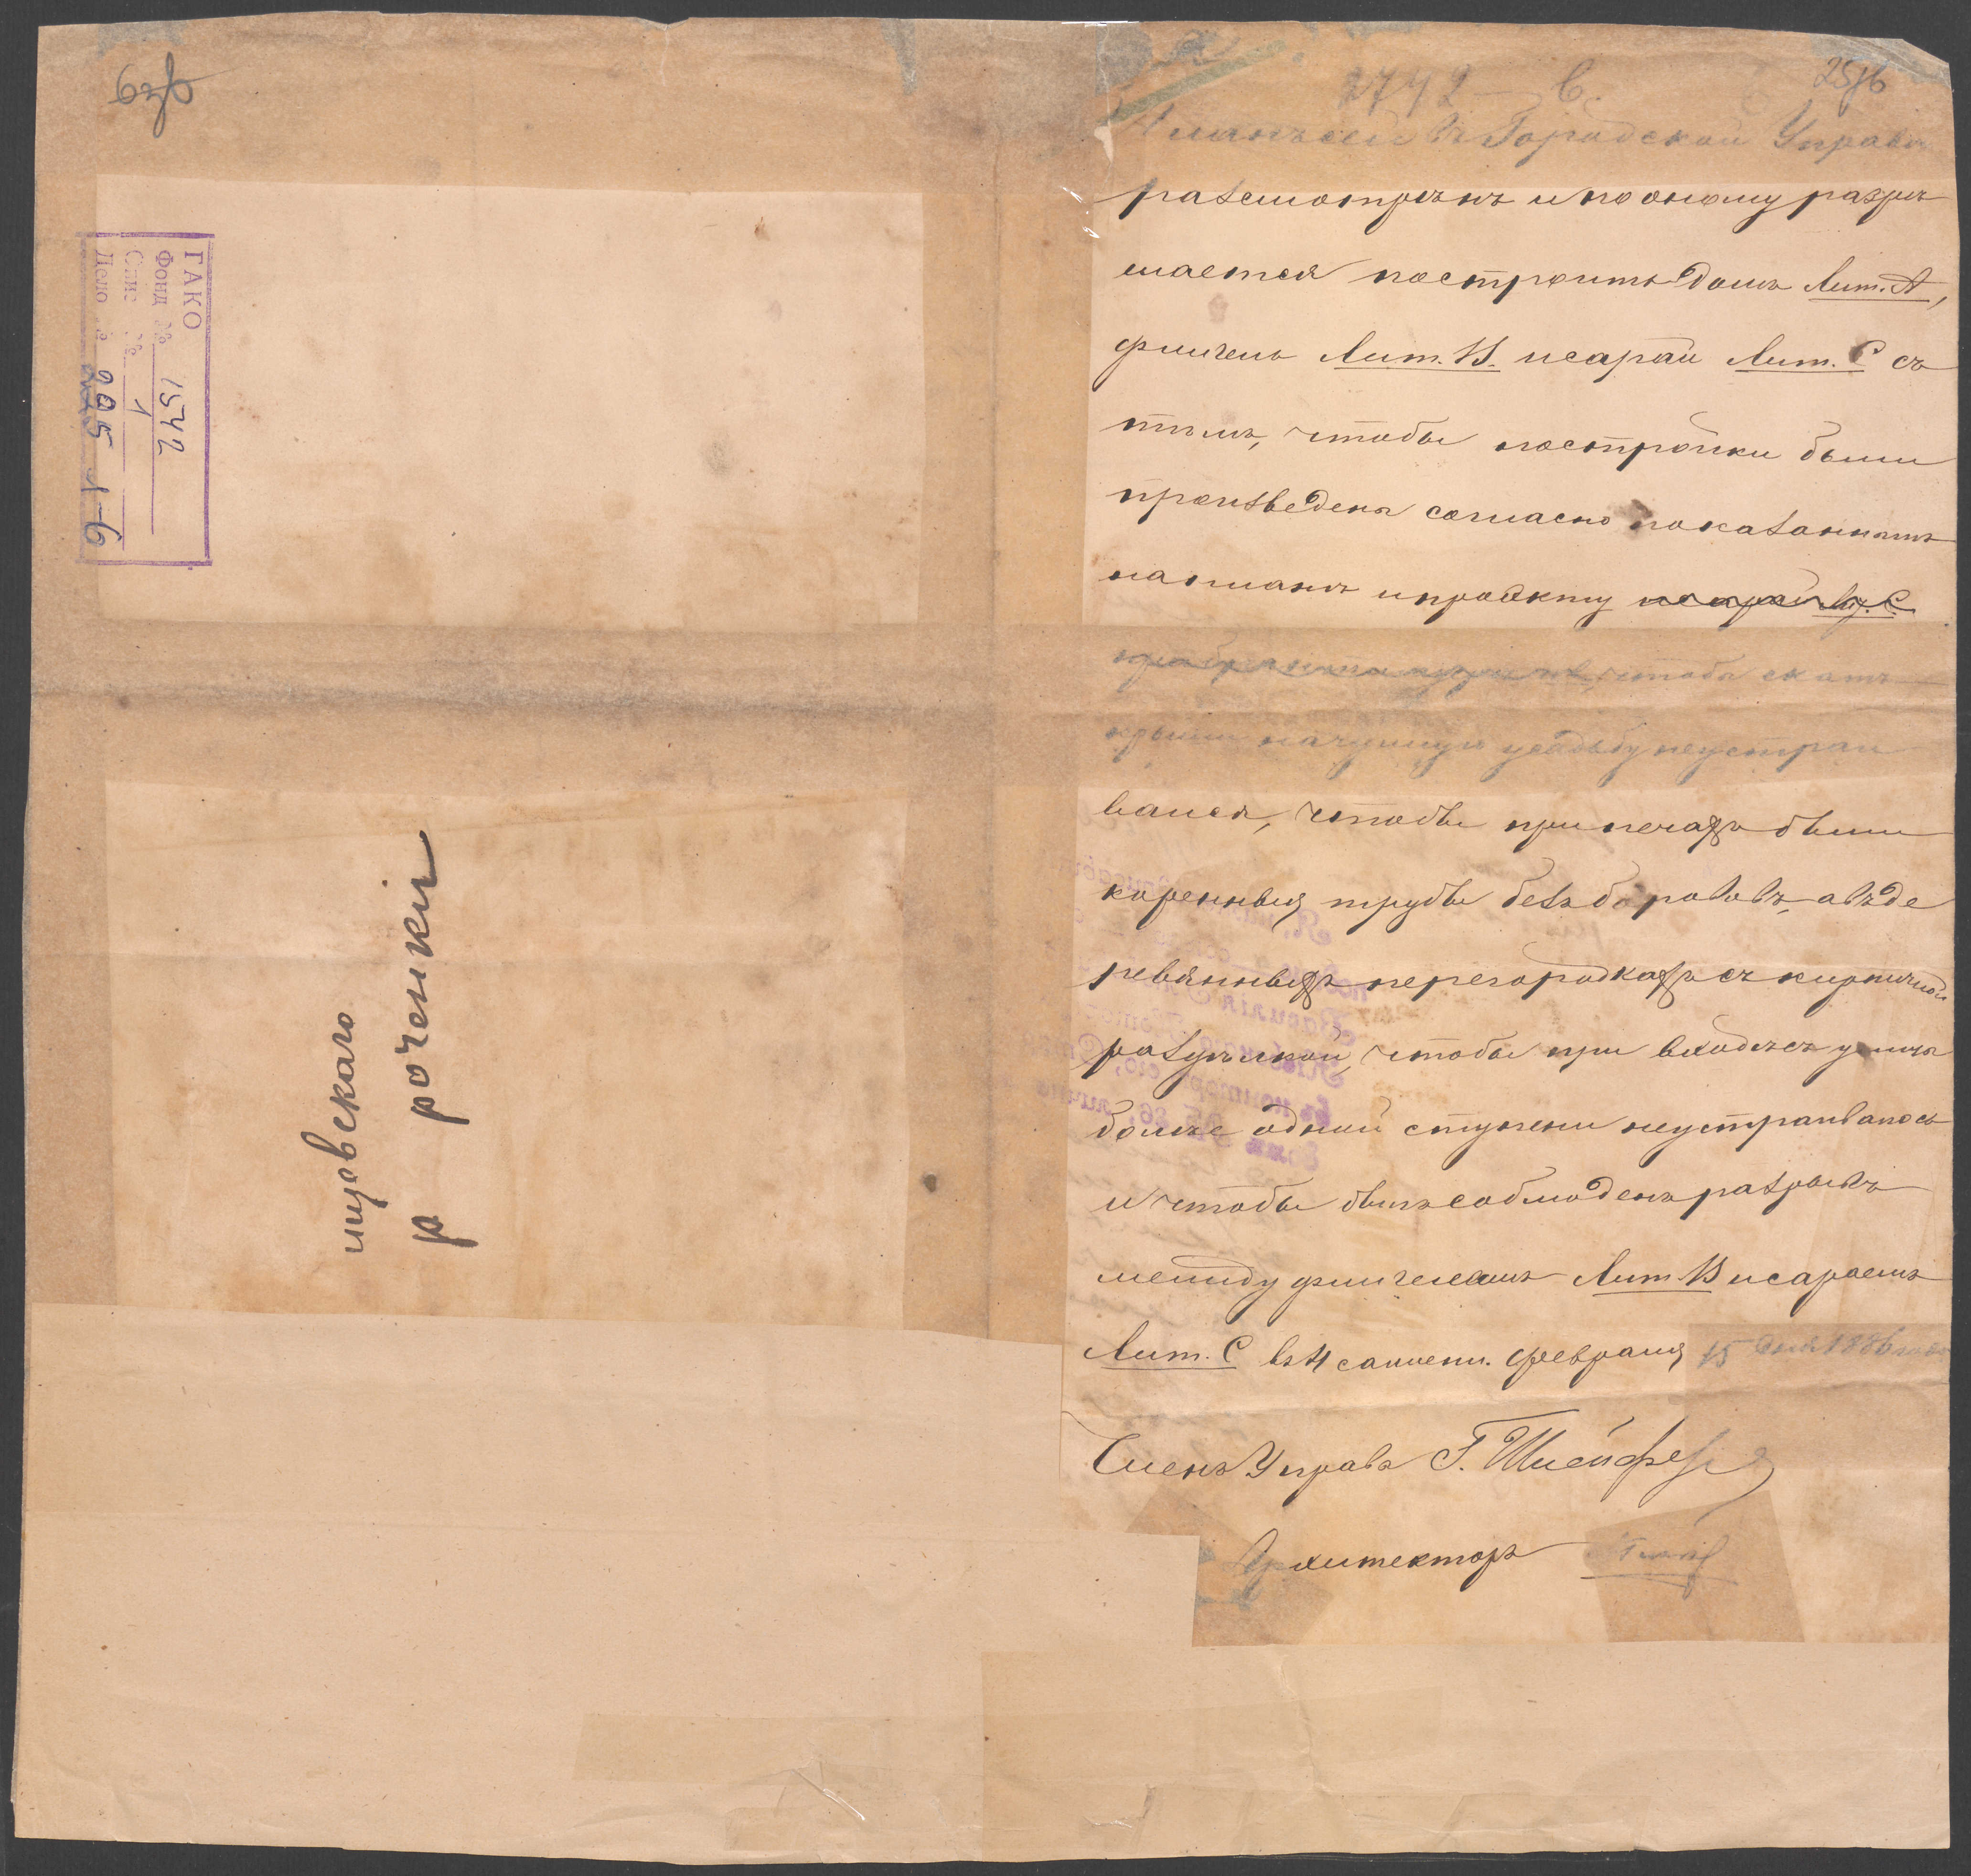 2742 — в.
Планъ сей въ Городской Управѣ
разсмотрѣнъ и по оному разрѣ
шается построить домъ Лит. А,
флигель Лит. В. и сарай Лит. С съ
тѣмъ, чтобы постройки были
произведены согласно показаннымъ
на планѣ и проэкту
чтобы скатъ
крыши на чужую усадьбу не устраи
вался, чтобы при печахъ были
коренныя трубы безъ борововъ, а въ де
ревянныхъ перегородкахъ съ кирпичной
раздѣлкой, чтобы при входѣ съ улицы
болѣе одной ступени не устраивалось
и чтобы былъ соблюденъ разрывъ
между флигелемъ Лит В и сараемъ
Лит. С въ 4 сажени. Февраля 15 дня 1886 года
Членъ Управы Г. Шлейферъ
Архитекторъ
ГАКО
Фонд № 1542
Опис № 1
Дело № 205 1-6
щовскаго
роченкіи